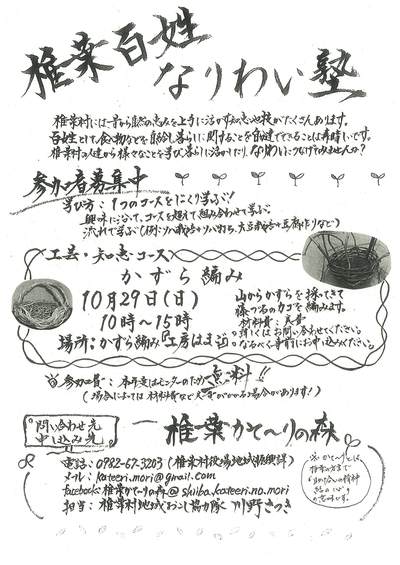 椎葉百姓
なりわい塾
椎葉村には昔から自然の恵みを上手に活かす知恵や技がたくさんあります。
百姓として、食べ物などを自給し暮らしに関することを自分でできることは素晴しいです。
椎葉村の人達から様々なことを学び暮らしに活かしたり、なりわいにつなげてみませんか?
参加者募集中
学び方:1つのコースをじっくり学ぶ!
興味に沿って、コースを超えて組み合わせて学ぶ。
流れで学ぶ
工芸・知恵コース
かずら編み
10月29日(日)
10時〜15時
場所:かずら編み「工房はまゆ
山からかずらを採ってきて
様々なカゴを編みます。
材料費:実費
詳しくはお問い合わせください。
なるべく事前にお申し込みください。
※参加費:本年度はモニターのため無料!!
(場合によっては材料費など実費がかかる場合があります!)
問い合わせ先
申し込み先
椎葉かて〜りの森
電話:0982-67-3203(椎葉村役場地域振興課)
メール:kateeri.mori@gmail.com
facebook:椎葉かてーりの森@shiiba.kateeri.no.mori
担当:椎葉村地域おこし協力隊 川野さつき
※かて〜りとは、
椎葉の方言で
の精神